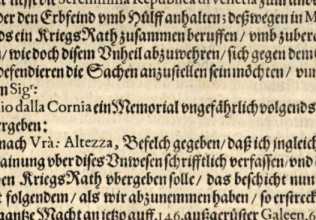 der den Erbfeind vmb Hülff anhalten: deßwegen in M
ds ein KriegsRath zusammen beruffen / vmb zuber
/ wie doch diesem Vnheil abzuwehren / sich gegen dem
defendieren die Sachen anzustellen sein möchten / vn
n Sigr:
io dalla Cornia ein Memorial vngefährlich volgends
ergeben:
nach Vrà: Altezza, Befelch gegeben / daß ich ingleich
ainung vber dises Vnwesen schrifftlich verfassen / vnd
en KriegsRath vbergeben solle / das beschicht nun
t folgendem / als wir abzunemmen haben / so erstreck
gantze Macht an jetzo auff 146. außgerüster Galeen. 6